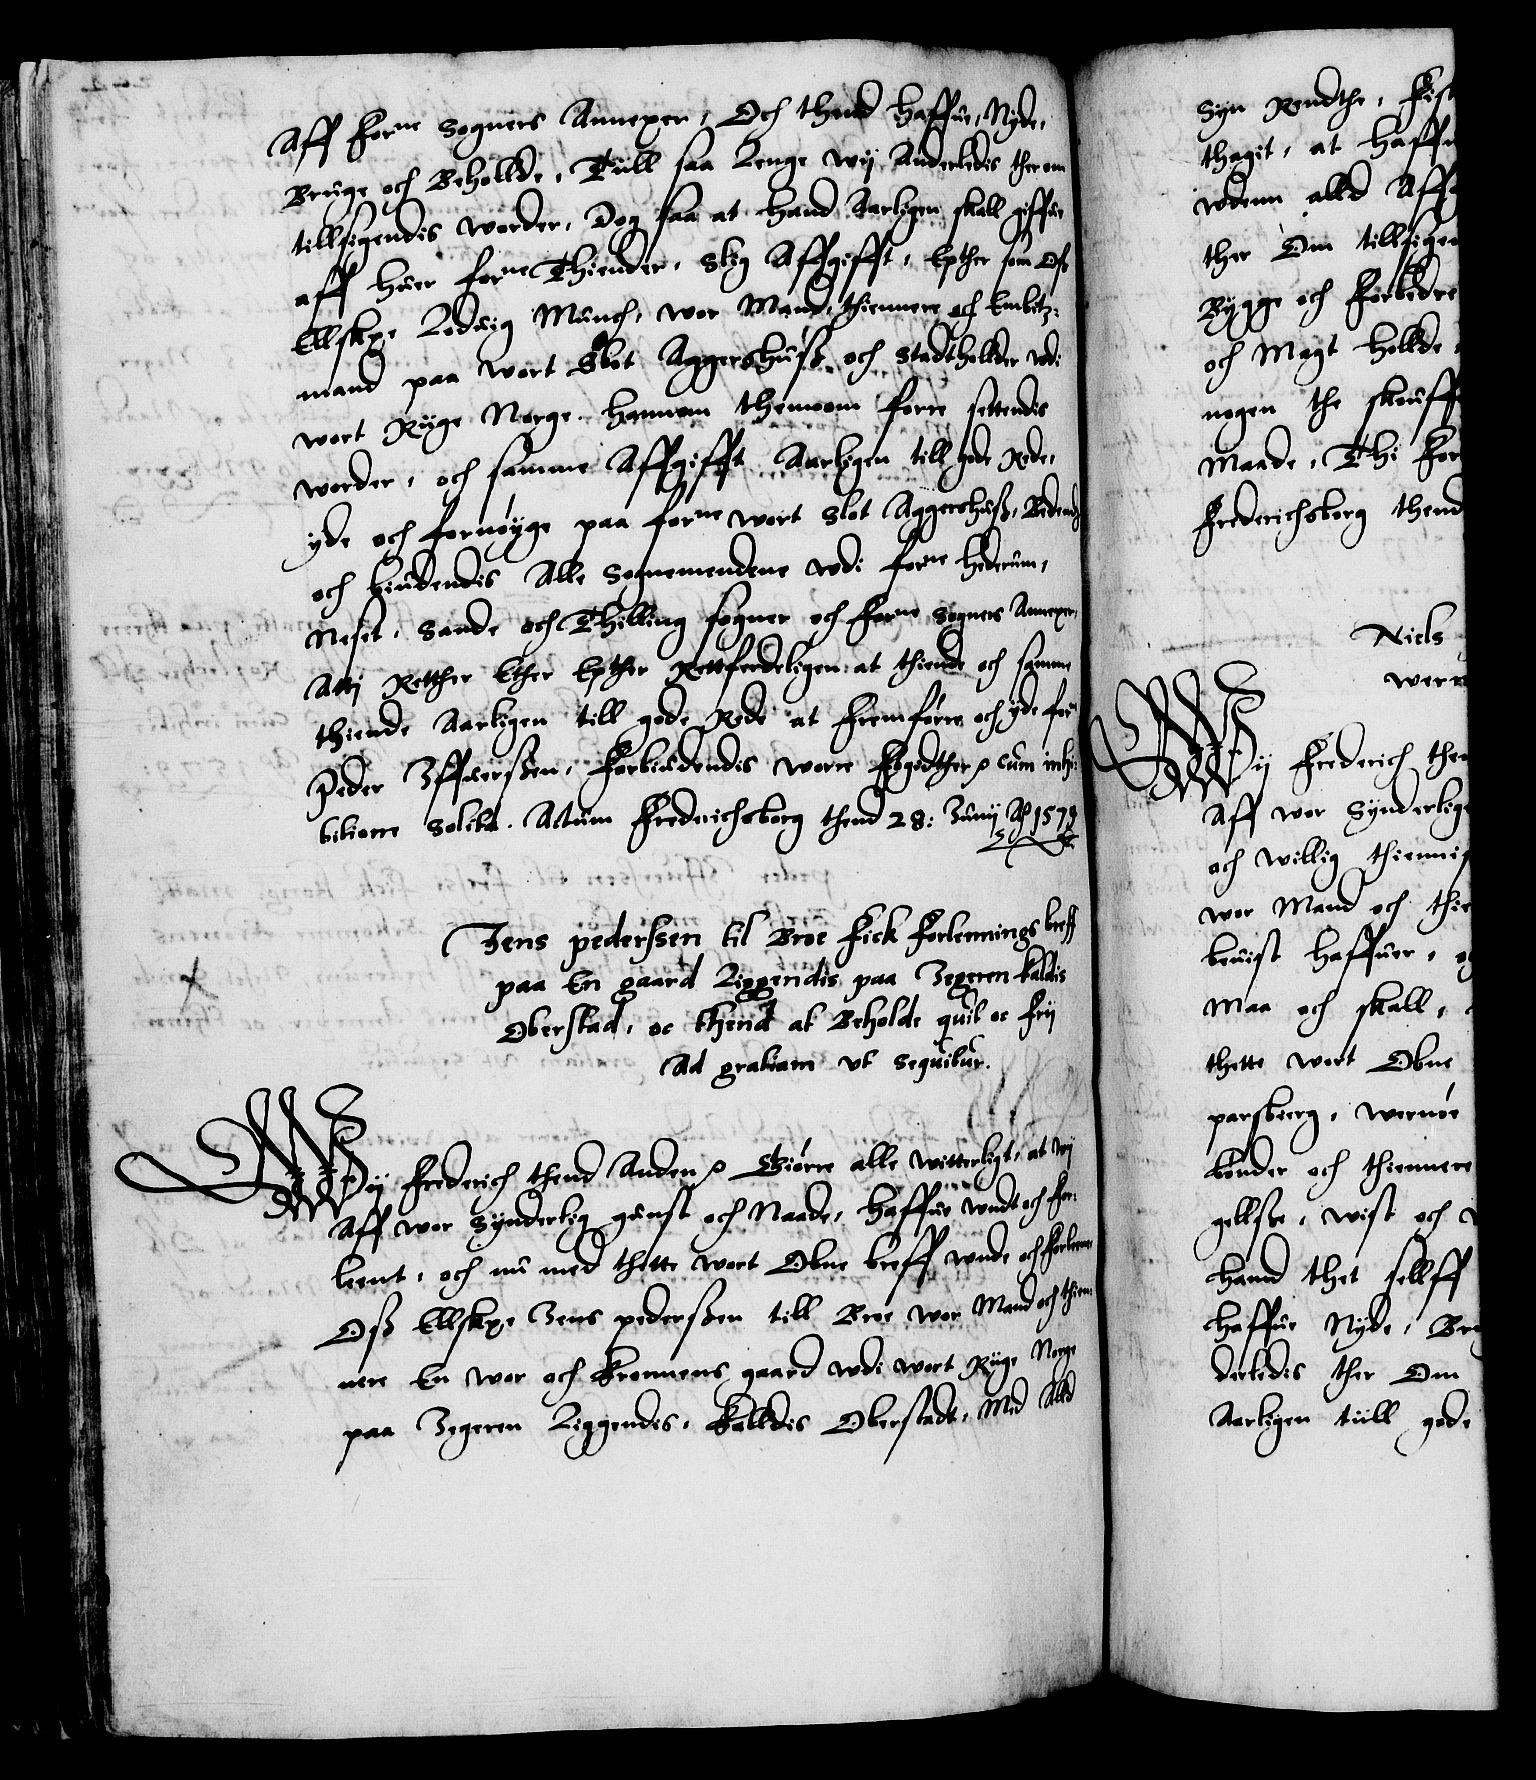 Aff forne Sogners Annexer, Och thend haffue, Nyde,
Bruge och Beholde, Till saa Lenge wij Anderledis ther om
tillsigendis worder, Dog saa at hand Aarligen skall giffue
aff huer forne Thiender, slig Affgifft, Epther som Oss
Ellskge Loduig Munch, wor Mand, thiennere och Embitz-
mand paa wort Slot Aggershuss och Stadthollder wdi
wort Rige Norge hannom thennom forre settendis
worder, och samme Affgifft Aarligen till gode Rede,
yde och fornøyge paa forne wort Slot Aggershuss, Bedendis
och biudendis Alle Sognemendene wdi forne Hederum,
Neset, Sande och Thilling sogner och forne Sogners Annexer,
Attj Retther Ether Epther Rettferdeligen at thiende och samme
thiende Aarligen till gode Rede at fremføre och yde forne
Peder Iffuerssen, Forbiudendis worre Fogedther &c cum inhi-
bitione Solita. Actum Frederichsborg thend 28: Junij Ao 1579
Jens pederssen til Broe Fick Forlennings breff
paa En gaard Liggendis paa Jegeren kaldis
Oberstad, oc thend at Beholde quit oc frij
Ad gratiam ut sequitur.
Wij Frederich thend Anden &c Giøre alle witterligt, at wij
Aff wor Synderlig gunst och Naade, haffue wndt och for-
leent, och nu med thette wort Obne breff wnde och forlenne
Oss Ellskge Jens pederssen till Broe wor Mand och thien-
nere En wor och Kronnens gaard wdi wort Rige Norge
paa Jegeren Liggendis, Kalldis Oberstadt, Med Alld
Syn Rendthe,
thagit, at haff
wdenn alld Aff
ther Om tillsigen
Bygge och forbedre
och Magt hollde
nogen the skouff
Maade, Thi For
Frederichsborg thend
Niels
wern
Wij Frederich then
Aff wor Synderlige
och willig thiennis
wor Mand och thie
beuist haffuer, o
Maa och skall,
thette wort Obne
parsberg, wernøe
bønder och thiennere
gellste, wist och
hannd thet sellff
haffue Nyde, Bru
derledis ther Om
Aarligen till gode